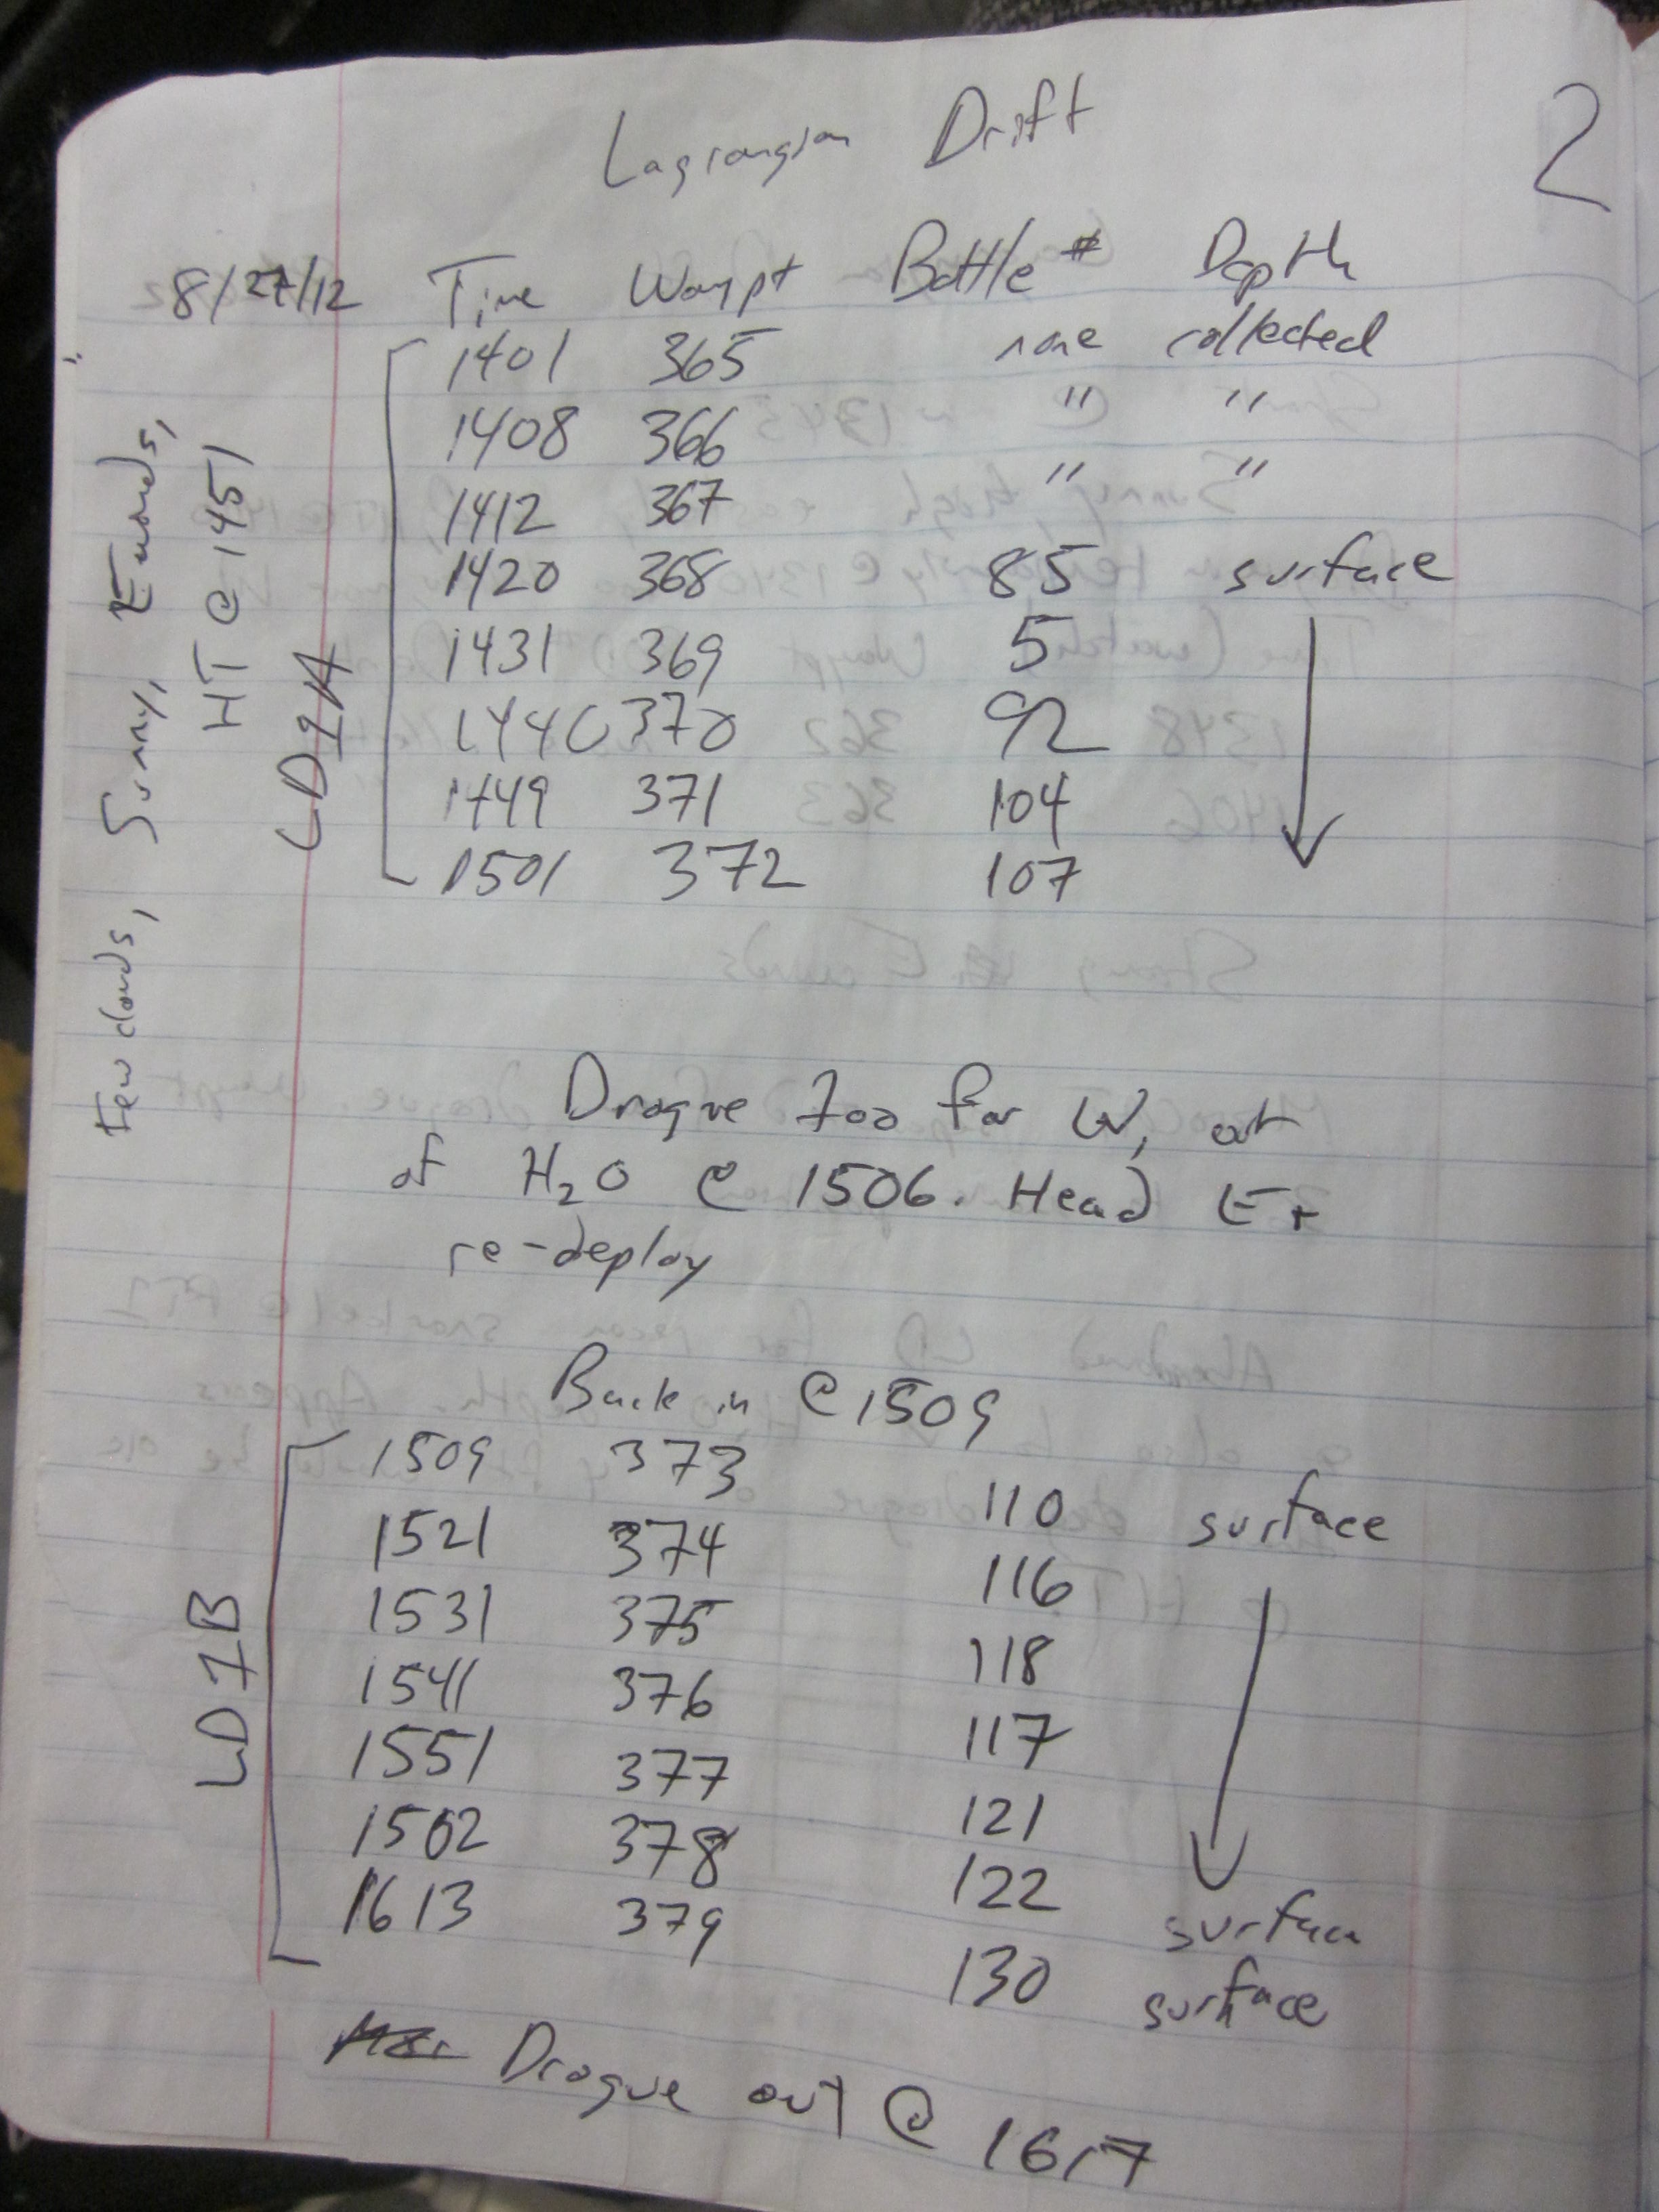 2
Lagrangian Drift
8/27/12 Time Waypt Bottle # Depth
1401 365 none collected
1408 366 " "
1412 367 " "
1420 368 85 surface
1431 369 5
1440 370 92
1449 371 104
1501 372 107
LD1A
Few clouds, Sunny, E winds,
HT @ 1451
Drogue too far W, out
of H2O @ 1506. Head E +
re-deploy
Back in @ 1509
1509 373 110 surface
1521 374 116
1531 375 118
1541 376 117
1551 377 121
1502 378 122 surface
1613 379 130 surface
LD1B
Drogue out @ 1617